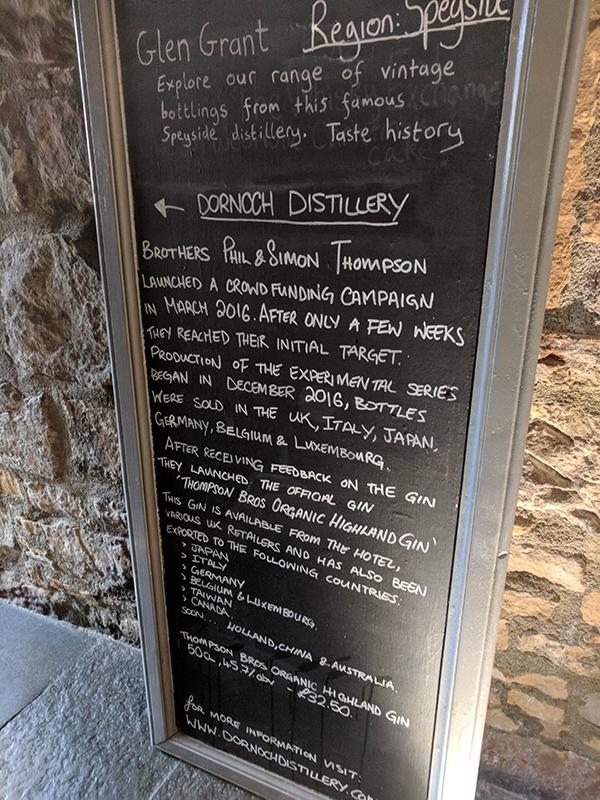 Glen Grant Region: Speyside
Explore our range of vintage
bottlings from this famous
Speyside distillery. Taste history
← DORNOCH DISTILLERY
BROTHERS PHIL & SIMON THOMPSON
LAUNCHED A CROWDFUNDING CAMPAIGN
IN MARCH 2016. AFTER ONLY A FEW WEEKS
THEY REACHED THEIR INITIAL TARGET.
PRODUCTION OF THE EXPERIMENTAL SERIES
BEGAN IN DECEMBER 2016, BOTTLES
WERE SOLD IN THE UK, ITALY, JAPAN,
GERMANY, BELGIUM & LUXEMBOURG.
AFTER RECEIVING FEEDBACK ON THE GIN
THEY LAUNCHED THE OFFICIAL GIN
'THOMPSON BROS ORGANIC HIGHLAND GIN'
THIS GIN IS AVAILABLE FROM THE HOTEL,
VARIOUS UK RETAILERS AND HAS ALSO BEEN
EXPORTED TO THE FOLLOWING COUNTRIES:
> JAPAN
> ITALY
> GERMANY
> BELGIUM & LUXEMBOURG.
> TAIWAN
> CANADA
SOON... HOLLAND, CHINA & AUSTRALIA.
THOMPSON BROS ORGANIC HIGHLAND GIN
50CL, 45.7% abv - £32.50.
for MORE INFORMATION VISIT:
WWW.DORNOCHDISTILLERY.COM